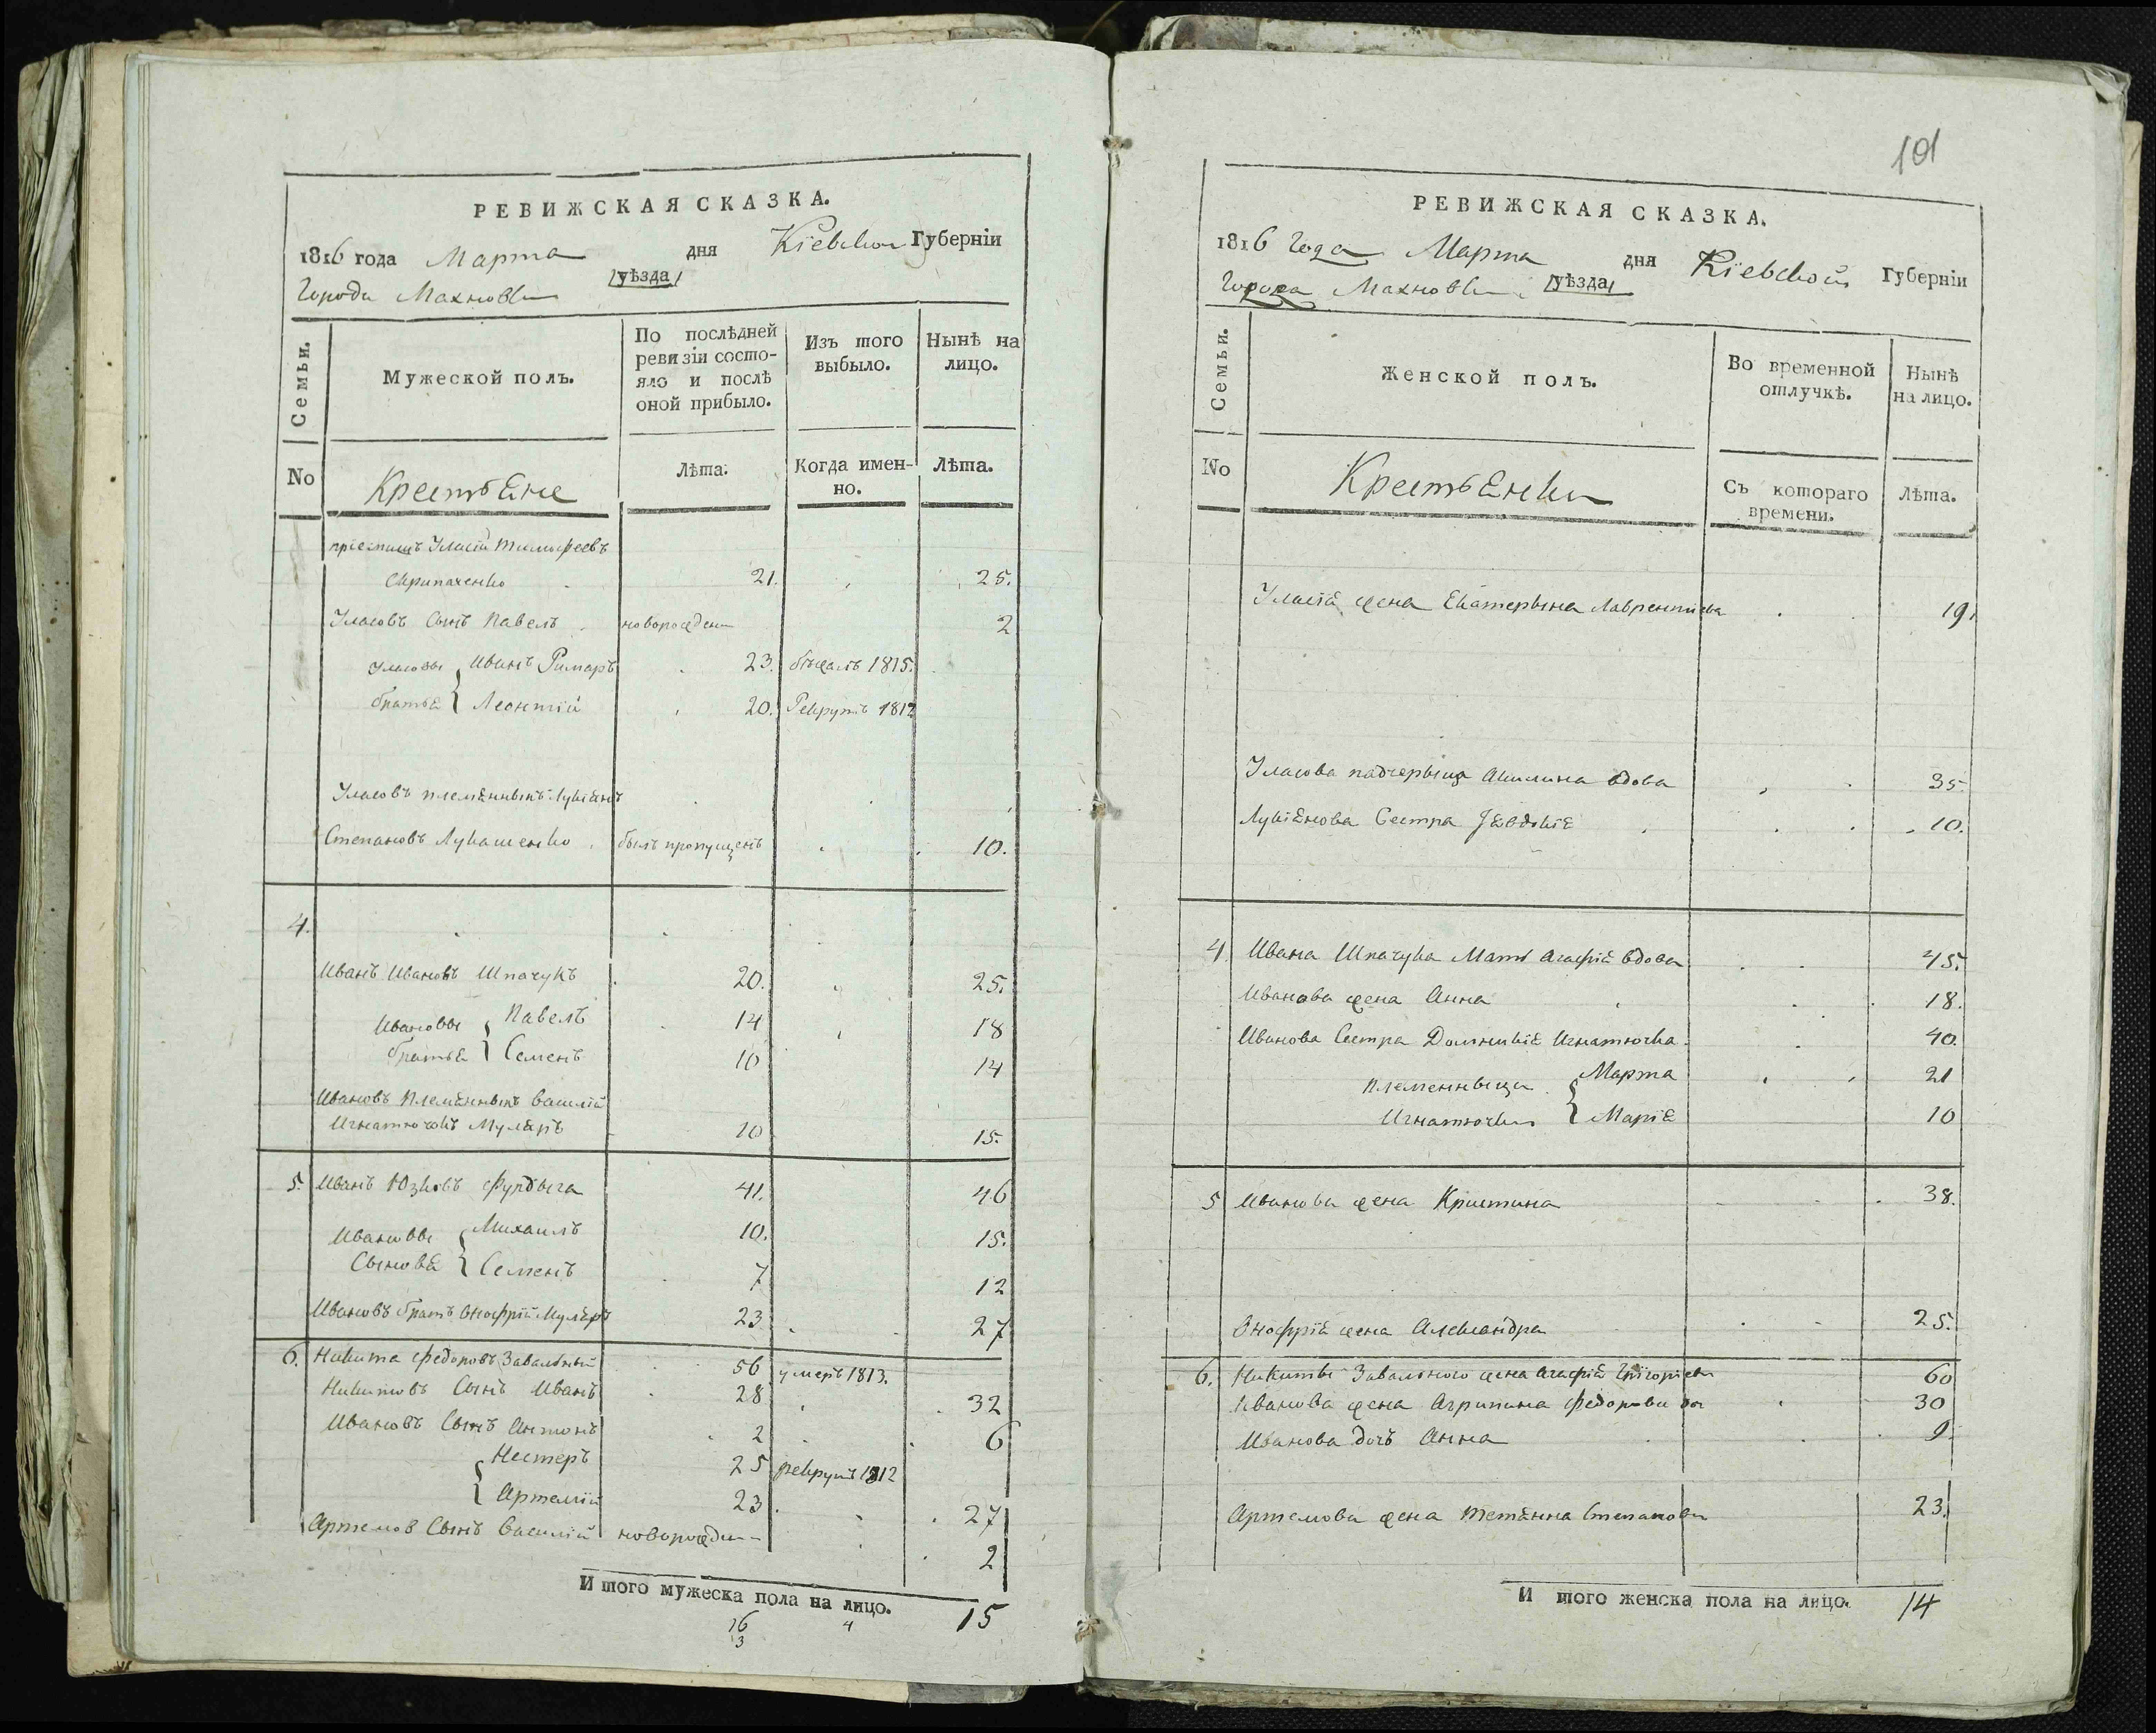 РЕВИЖСКАЯ СКАЗКА.
1816 года Марта дня Кіевской Губерніи
Города Махновки уѣзда
Семьи. Мужеской полъ. По послѣдней ревизіи состояло и послѣ оной прибыло. Изъ того выбыло. Нынѣ на лицо.
No Крестьяне Лѣта. Когда именно. Лѣта.
пріемышъ Уласій Тимофеевъ
Скрипаченко 21. 25.
Уласовъ Сынъ Павелъ новорожден 2
Уласовы Иванъ Римаръ 23. бѣжалъ 1815.
братья Леонтій 20. Рекрутъ 1812
Уласовъ племянныкъ Лукіянъ
Степановъ Лукашенко былъ пропущенъ 10.
4.
Иванъ Ивановъ Шпачукъ 20. 25.
Ивановы Павелъ 14 18
братья Семенъ 10 14
Ивановъ Племянныкъ Василій
Игнатючокъ Муляръ 10 15.
5. Иванъ Юзковъ Фурдыга 41. 46
Ивановы Михаилъ 10. 15.
Сыновя Семенъ 7 12
Ивановъ братъ Онофрій Муляръ 23 27
6. Никита Федоровъ Завальный 56 умеръ 1813.
Никитовъ Сынъ Иванъ 28 32
Ивановъ Сынъ Антонъ 2 6
Нестеръ 25 рекрутъ 1812
Артемій 23 27
Артемов Сынъ Василій новорожден 2
И того мужеска пола на лицо. 15
16 4
3
101
РЕВИЖСКАЯ СКАЗКА.
1816 Года Марта дня Кіевской Губерніи
Города Махновки уѣзда
Семьи. Женской полъ. Во временной отлучкѣ. Нынѣ на лицо.
No Крестьянки Съ котораго времени. Лѣта.
Уласія жена Екатерына Лаврентіева 19.
Уласова падчерыца Акилина вдова 35.
Лукіянова Сестра Явдокія 10.
4. Ивана Шпачука Мать Агафія вдова 45.
Иванова жена Анна 18.
Иванова Сестра Домникія Игнатючка 40.
племенныци Марта 21
Игнатючки Марія 10
5 Иванова жена Кристина 38.
Онофрія жена Александра 25.
6. Никиты Завального жена Агафія Григоріева 60
Иванова жена Агрипина Федорова 30
Иванова дочъ Анна 9.
Артемова жена Тетянна Степанова 23.
И того женска пола на лицо. 14